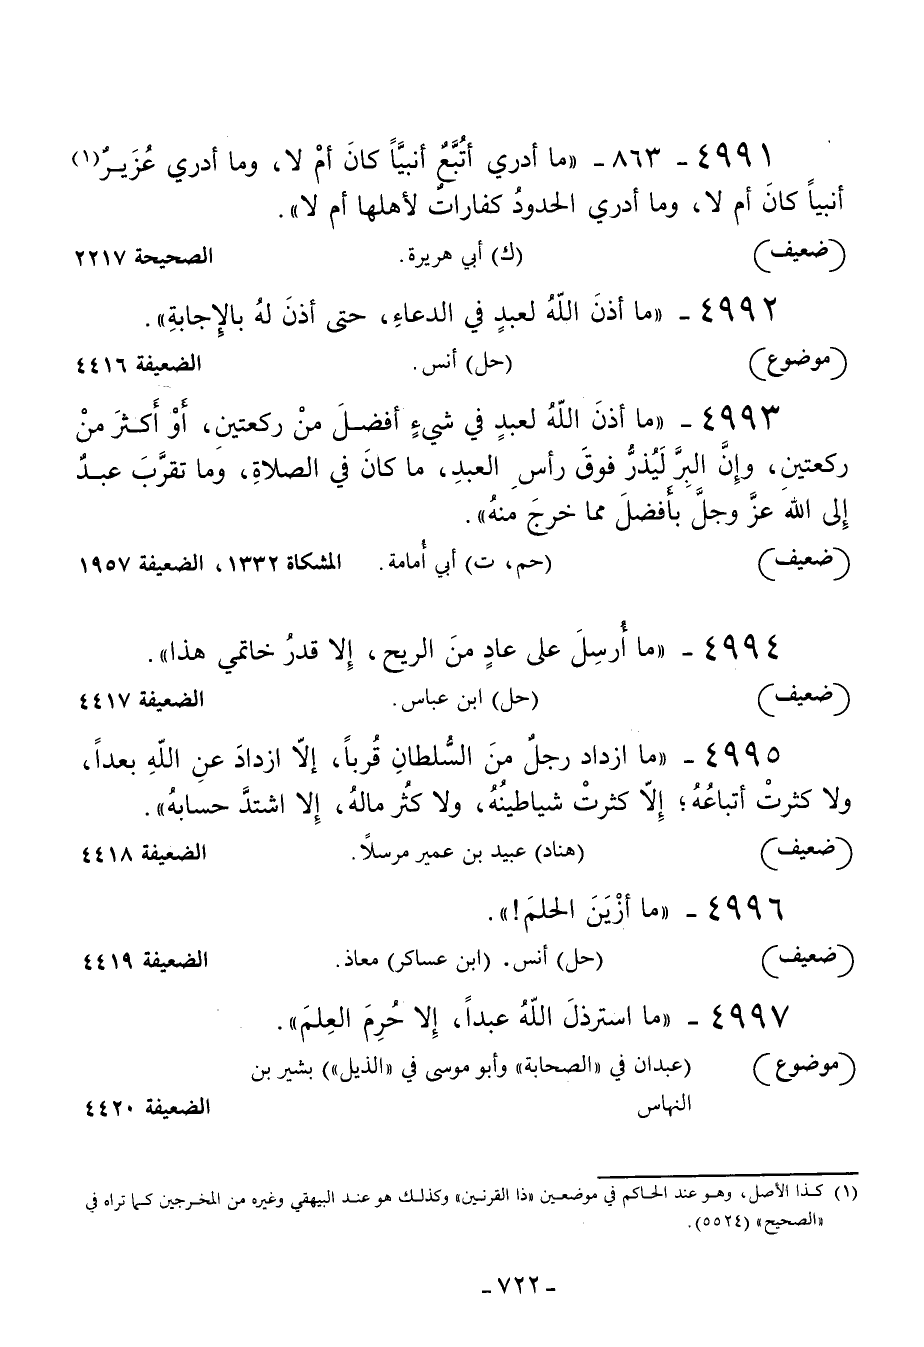 ٤٩٩١ ـ ٨٦٣ ـ «ما أدري أتُبَّعٌ أنبيَّاً كانَ أمْ لا، وما أدري عُزَيرٌ(١)
أنبياً كانَ أم لا، وما أدري الحدودُ كفاراتٌ لأهلها أم لا».
(ضعيف) (ك) أبي هريرة. الصحيحة ٢٢١٧
٤٩٩٢ ـ «ما أذنَ اللّهُ لعبدٍ في الدعاءِ، حتى أذنَ لهُ بالإِجابةِ».
(موضوع) (حل) أنس. الضعيفة ٤٤١٦
٤٩٩٣ ـ «ما أذنَ اللّهُ لعبدٍ في شيءٍ أفضلَ منْ ركعتينِ، أَوْ أَكثرَ منْ
ركعتينِ، وإِنَّ البِرَّ لَيُذرُّ فوقَ رأسِ العبدِ، ما كانَ في الصلاةِ، وما تقرَّبَ عبدٌ
إِلى الله عزَّ وجلَّ بأَفضلَ مما خرجَ منهُ».
(ضعيف) (حم، ت) أبي أُمامة. المشكاة ١٣٣٢، الضعيفة ١٩٥٧
٤٩٩٤ ـ «ما أُرسِلَ على عادٍ منَ الريح، إِلا قدرُ خاتمي هذا».
(ضعيف) (حل) ابن عباس. الضعيفة ٤٤١٧
٤٩٩٥ ـ «ما ازداد رجلٌ منَ السُّلطانِ قُرباً، إلاّ ازدادَ عنِ اللّهِ بعداً،
ولا كثرتْ أتباعُهُ؛ إِلاّ كثرتْ شياطينُهُ، ولا كثُر مالهُ، إِلا اشتدَّ حسابهُ».
(ضعيف) (هناد) عبيد بن عمير مرسلاً. الضعيفة ٤٤١٨
٤٩٩٦ ـ «ما أزْيَنَ الحلمَ!».
(ضعيف) (حل) أنس. (ابن عساكر) معاذ. الضعيفة ٤٤١٩
٤٩٩٧ ـ «ما استرذلَ اللّهُ عبداً، إِلا حُرِمَ العِلمَ».
(موضوع) (عبدان في «الصحابة» وأبو موسى في «الذيل») بشير بن
النهاس الضعيفة ٤٤٢٠
(١) كذا الأصل، وهو عند الحاكم في موضعين «ذا القرنين» وكذلك هو عند البيهقي وغيره من المخرجين كما تراه في
«الصحيح» (٥٥٢٤).
ـ ٧٢٢ ـ